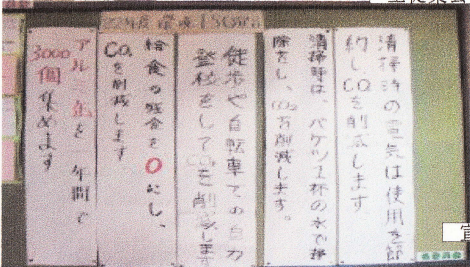 清掃時の電気は使用を節
約しCO₂を削減します
清掃時は、バケツ1杯の水で掃
除をし、CO₂を削減します。
徒歩や自転車での自力
登校をしてCO₂を削減します
給食の残食を0にし、
CO₂を削減します
アルミ缶を年間で
3000個集めます